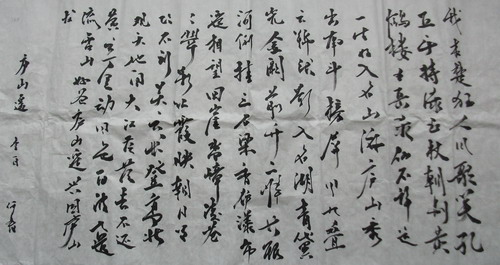 我本楚狂人凤歌笑孔
丘手持绿玉杖朝别黄
鹤楼五岳寻仙不辞远
一生好入名山游庐山秀
出南斗傍屏风九叠
云锦张影入名湖青黛
光金阙前开二峰长银
河倒挂三石梁香炉瀑布
遥相望回崖沓嶂凌苍
苍翠影红霞映朝日鸟
飞不到吴天长登高壮
观天地间大江茫茫去不还
黄云万里动风色白波九道
流雪山好为庐山谣兴因庐山
发
庐山谣 李白